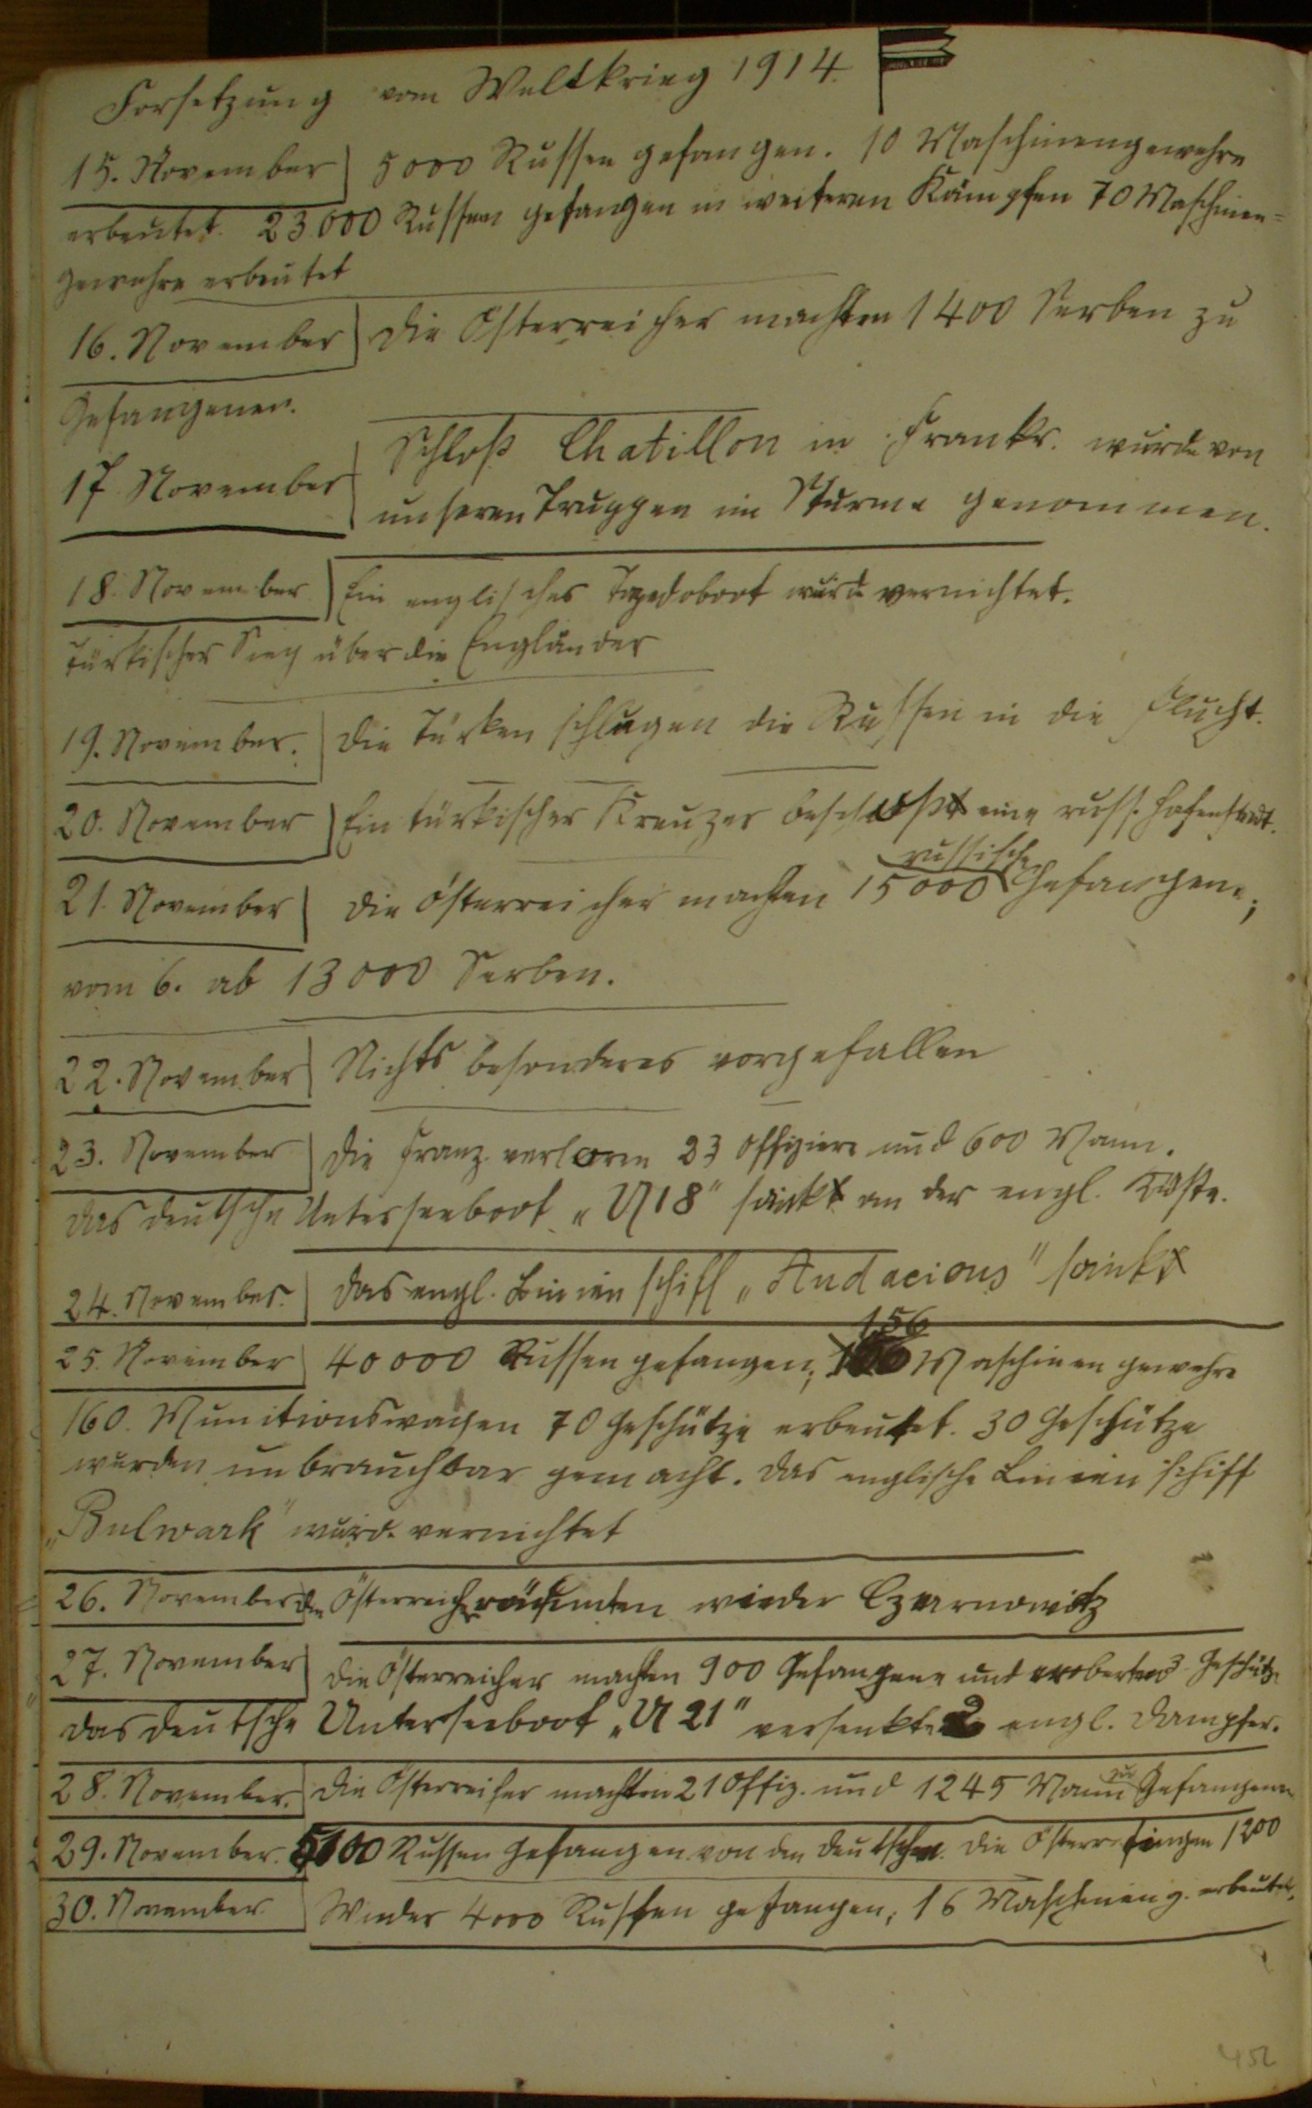 Forsetzung vom Weltkrieg 1914.
15. November 5000 Russen gefangen. 10 Maschinengewehre
erbeutet. 23000 Russen gefangen in weiteren Kämpfen 70 Maschinen-
gewehre erbeutet
16. November Die Österreicher machten 1400 Serben zu
Gefangenen.
17 November Schloß Chatillon in Frankr. wurde von
unseren Truppen im Sturme genommen.
18. November Ein englisches Torpedoboot wurde vernichtet.
Türkischer Sieg über die Engländer
19. November. Die Türken schlugen die Russen in die Flucht.
20. November Ein türkischer Kreuzer beschoß eine russ. Hafenstadt.
russische
21. November Die Österreicher machten 15000 Gefangene,
vom 6. ab 13000 Serben.
22. November Nichts besonderes vorgefallen
23. November Die Franz. verloren 23 Offiziere und 600 Mann.
Das deutsche Unterseeboot „U 18" sank an der engl. Küste.
24. November. Das engl. Linienschiff „Audacious" sank
156
25. November 40000 Russen gefangen, Maschinengewehre
160. Munitionswagen 70 Geschütze erbeutet. 30 Geschütze
wurden unbrauchbar gemacht. Das englische Linienschiff
„Bulwark" wurde vernichtet
26. November Die Österreicher räumten wieder Czernowitz
27. November Die Österreicher machten 900 Gefangene und eroberten 3 Geschütze
Das deutsche Unterseeboot „U 21" versenkte 2 engl. Dampfer.
28. November. Die Österreicher machten 21 Offiz. und 1245 Mann zu Gefangenen
29. November. 5100 Russen gefangen von den Deutschen. Die Österr. fingen 1200
30. November Wieder 4000 Russen gefangen, 16 Maschineng. erbeutet.
452